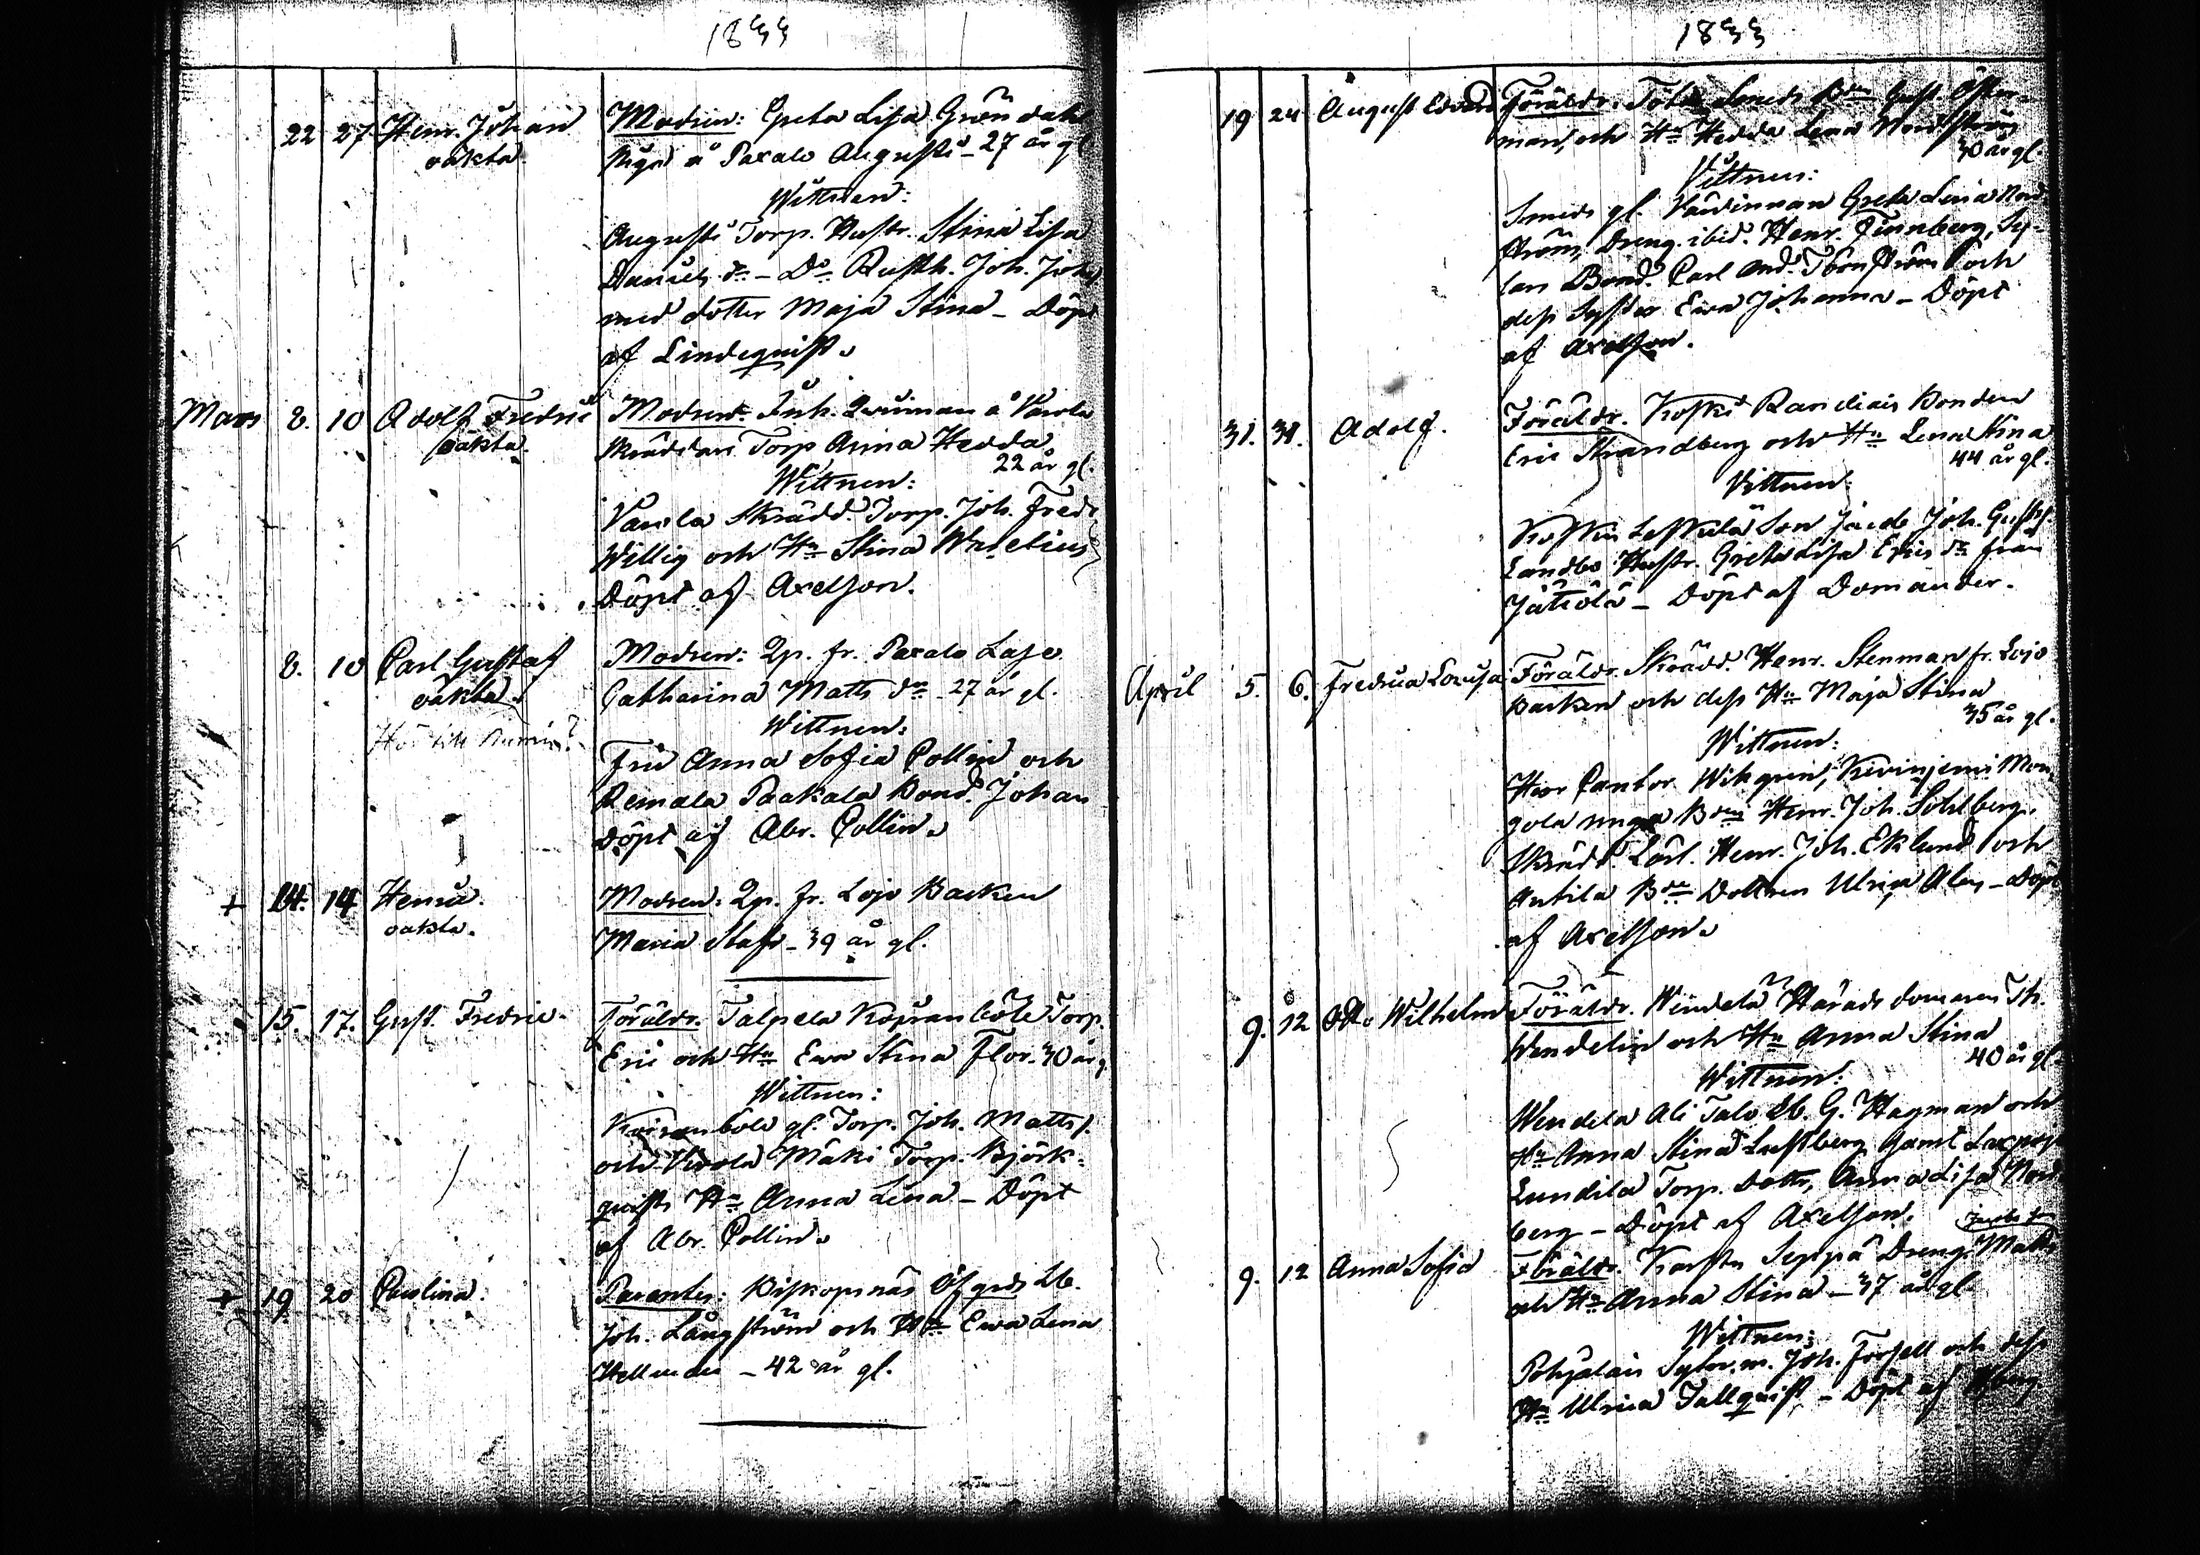 1833
22 27 Henr. Johan
oäkta.
Modren: Greta Lisa Gröndahl
Piga å Paxalo Augusti - 27 år gl
Wittnen:
Augusti Torp. Hustr. Stina Lisa
Daniels dr - Do Rusth. Joh. Joh
med dotter Maja Stina - Döpt
af Lindeqvist.
Mars 8. 10 Adolf Fredric
oäkta.
Modren: Inh. Qvinnan å Varola
Skräddars Torp Anna Hedda
22 år gl.
Wittnen:
Varola Skrädd. Torp. Joh. Fredr
Willig och Hu Stina Waselius
Döpt af Axelson.
8. 10 Carl Gustaf
oäkta.
Modren: Qp. fr. Paxalo Lass
Catharina Matts dr - 27 år gl.
Wittnen:
Fru Anna Sofia Collin och
Remala Paakala Bond. Johan
Döpt af Abr. Collin.
+ 14. 14 Henric.
oäkta.
Modren: Qp. fr. Lojo Backen
Maria Staf - 39 år gl.
15. 17. Gust. Fredric.
Föräldr. Talpela Torp.
Eric och Hu Ewa Stina Flor. 30 år g.
Wittnen:
gl. Torp. Joh. Matts s.
och Virola Mäki Torp. Björk-
qvists Hu Anna Lena - Döpt
af Abr. Collin.
+ 19 20 Paulina.
Parentes: Biskopsnäs Öfgrds Lb.
Joh. Långström och Hu Ewa Lena
Hellender - 42 år gl.
1833
19 24 August Edvard
Föräldr. Smeds Bden Gust. Öster-
man, och Hu Hedda Lena Nordström
30 år gl.
Vittnen:
Smeds gl. Värdinnan Greta Lena Nord
ström, Dreng. ibid. Henr. Finnberg, Sy-
Bond. Carl And. Törnström och
dess Syster Ewa Johanna - Döpt
af Axelson.
31. 31. Adolf.
Föräldr. Koski Bonden
Eric Strandberg och Hu Lena Stina
44 år gl.
Vittnen:
Koskis Leskelä Son Jacob Joh. Gustfs.
Landbo Hustr. Greta Lisa Erics dr från
Jätiölä - Döpt af Domander.
April 5. 6. Fredrica Lovisa
Föräldr. Skrädd. Henr. Stenman fr. Lojo
Backen och dess Hu Maja Stina
35 år gl.
Wittnen:
Herr Cantor Wikgren, Kivinjemi Mon
gola unga Bden Henr. Joh. Sohlberg,
Skrädd. Lärl. Henr. Joh. Eklund och
Antila Bde Dottren Ulrica Alen - Döpt
af Axelson.
9. 12 Otto Wilhelm
Föräldr. Wendelä Härads domaren Th.
Wendelin och Hu Anna Stina
40 år gl.
Wittnen:
Wendela Ali Talo Lb. G. Hagman och
Hu Anna Stina Lustberg, Gaml.
Lundila Torp. Dottr, Anna Lisa Nord-
berg - Döpt af Axelson.
9. 12 Anna Sofia
Jacobs son
Föräldr. Karstu Seppä Dreng. Matts
och Hu Anna Stina - 37 år gl.
Wittnen:
Pohjolais Sytn. m. Joh. Forsell och dess
Hu Ulrica Tallqvist - Döpt af